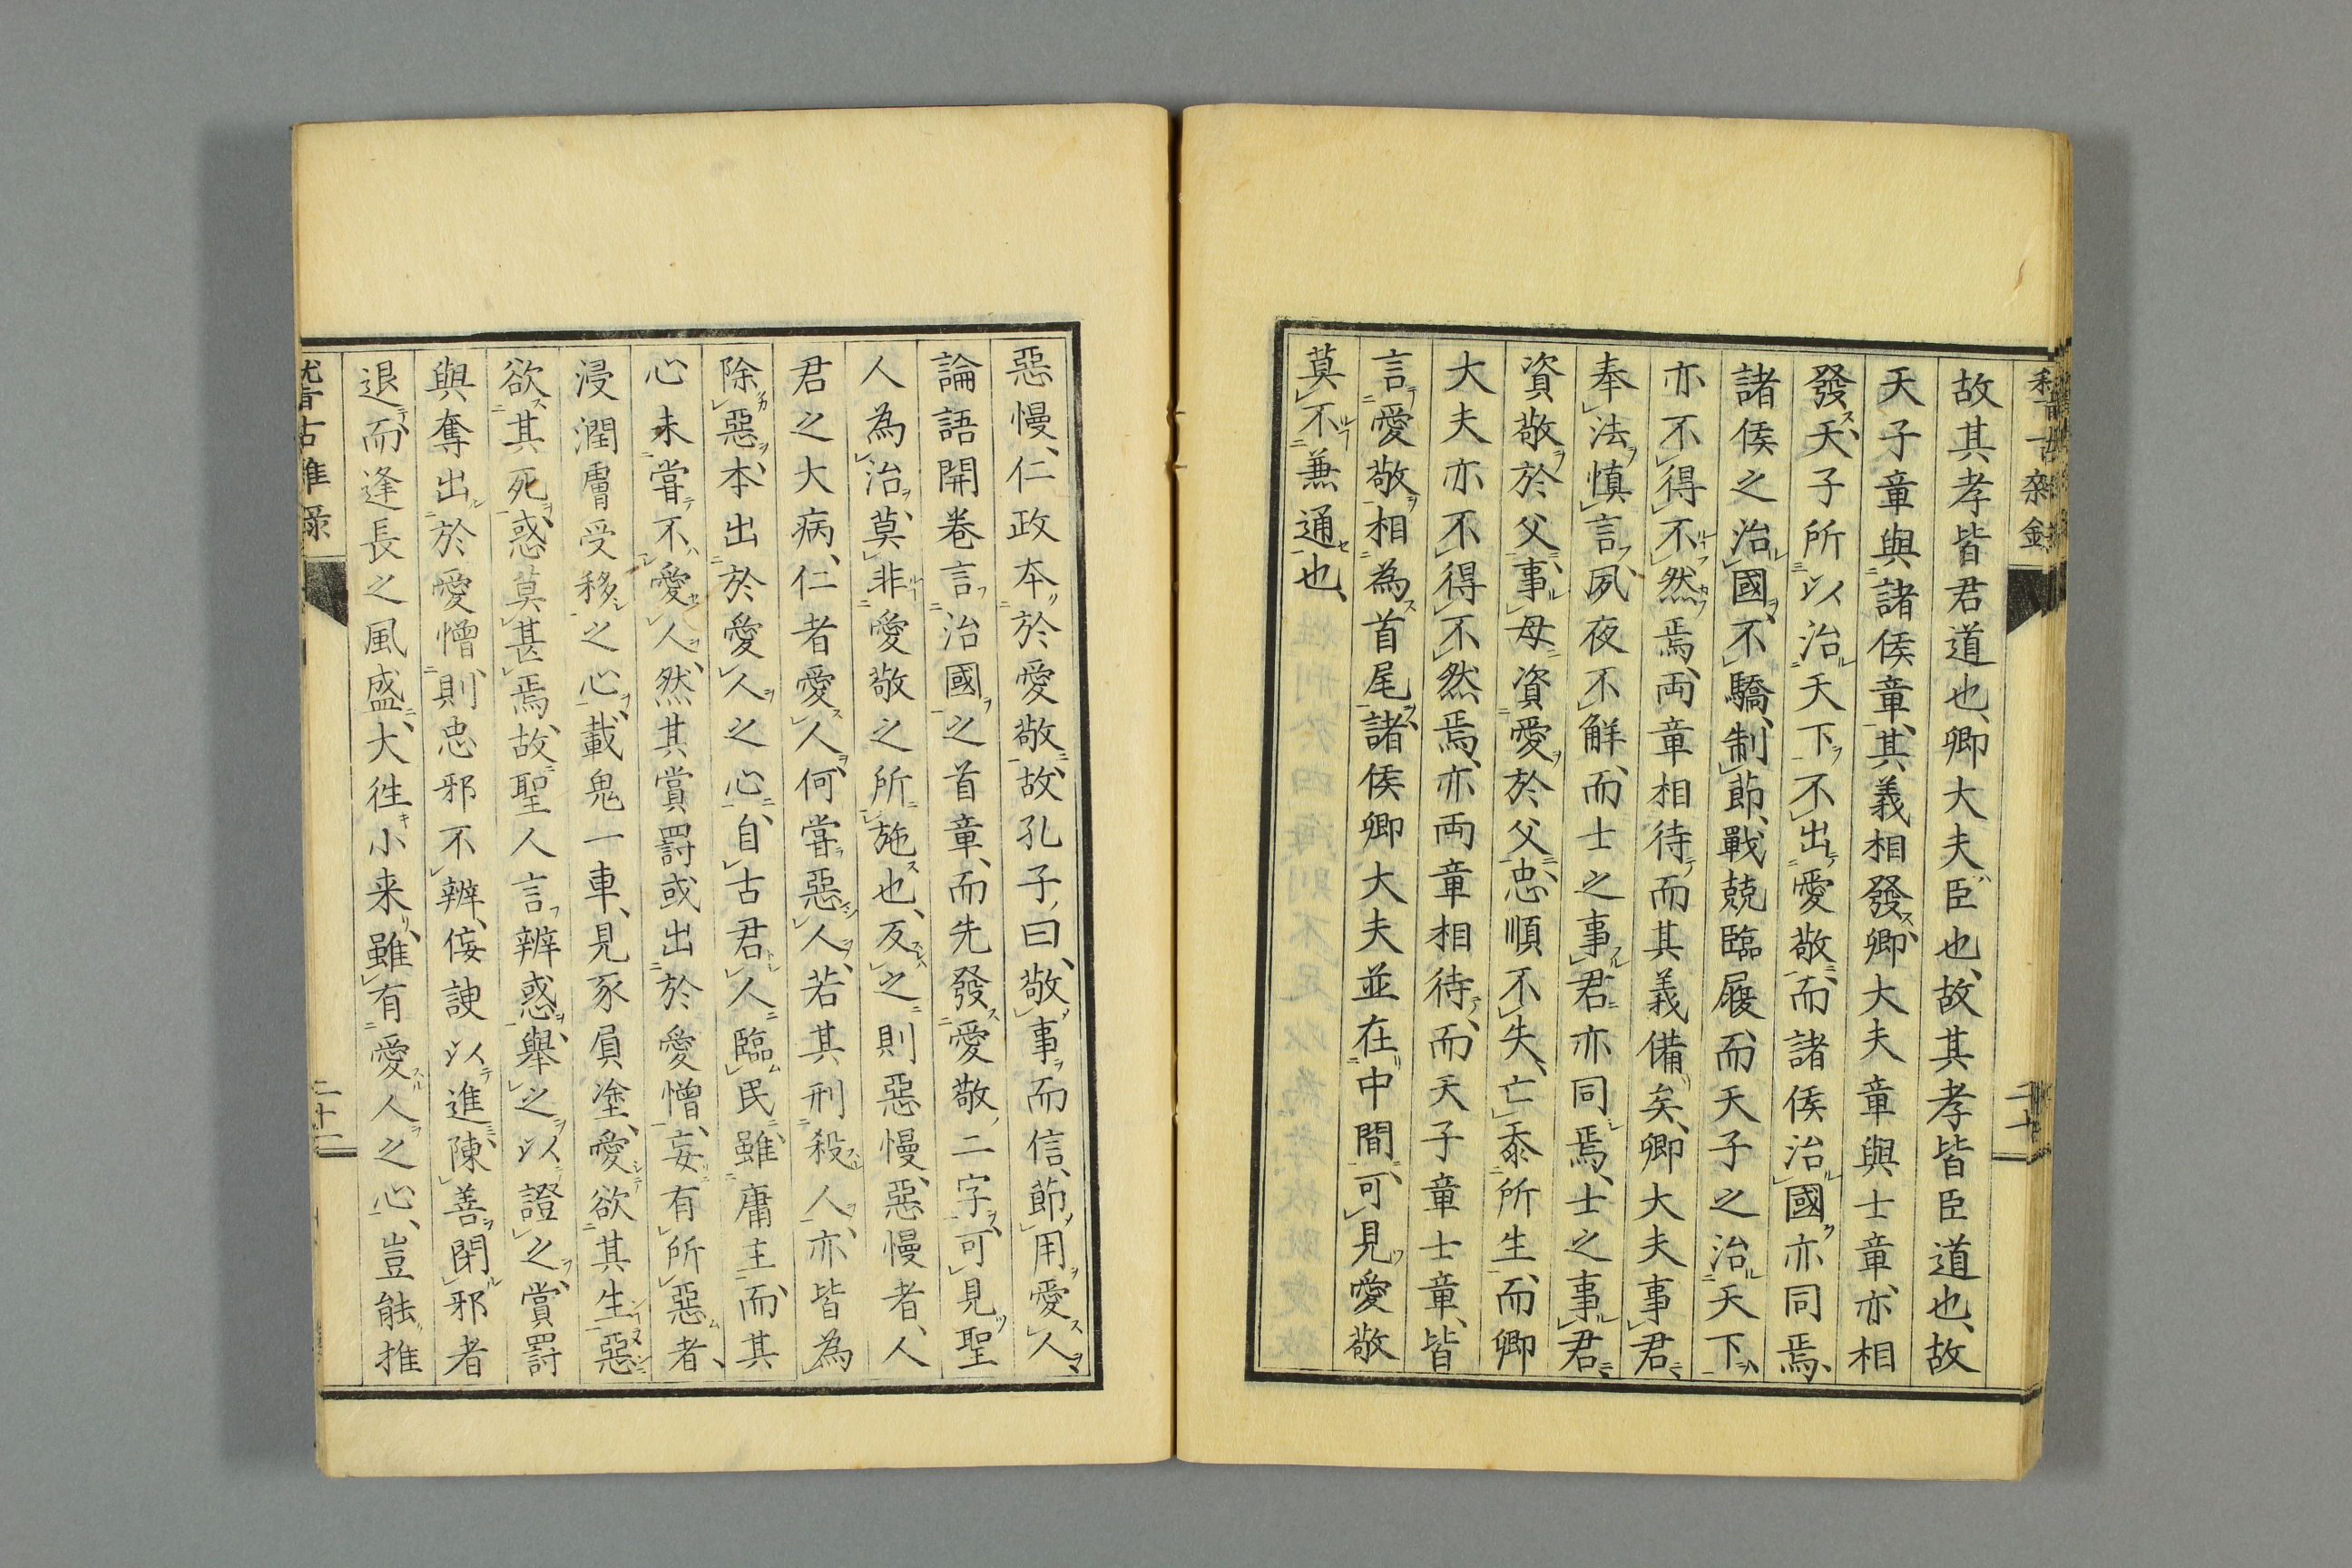 故其孝皆君道也、卿大夫臣也、故其孝皆臣道也、故
天子章與諸侯章、其義相發、卿大夫章與士章、亦相
發、天子所以治天下、不出愛敬、而諸侯治國亦同焉、
諸侯之治國、不驕、制節、戰兢臨履、而天子之治天下
亦不得不然焉、両章相待而其義備矣、卿大夫事君
奉法慎言、夙夜不解、而士之事君亦同焉、士之事君
資敬於父、事母資愛於父、忠順不失、亡忝所生、而卿
大夫亦不得不然焉、亦両章相待、而天子章士章、皆
言愛敬相為首尾、諸侯卿大夫並在中間、可見愛敬
莫不兼通也、
二十
惡慢、仁政本於愛敬、故孔子曰、敬事而信、節用愛人
論語開卷言治國之首章、而先發愛敬二字、可見聖
人為治、莫非愛敬之所施也、反之則惡慢、惡慢者、人
君之大病、仁者愛人、何嘗惡人、若其刑殺人、亦皆為
除惡、本出於愛人之心、自古君人臨民、雖庸主、而其
心未嘗不愛人、然其賞罰或出於愛憎、妄有所惡者、
浸潤膚受移之心、載鬼一車、見豕負塗、愛欲其生惡
欲其死、惑莫甚焉、故聖人言辨惑、舉之以證之、賞罰
與奪出於愛憎、則忠邪不辨、佞諛以進、陳善閉邪者
退而逢長之風盛、大往小来、雖有愛人之心、豈能推
二十二